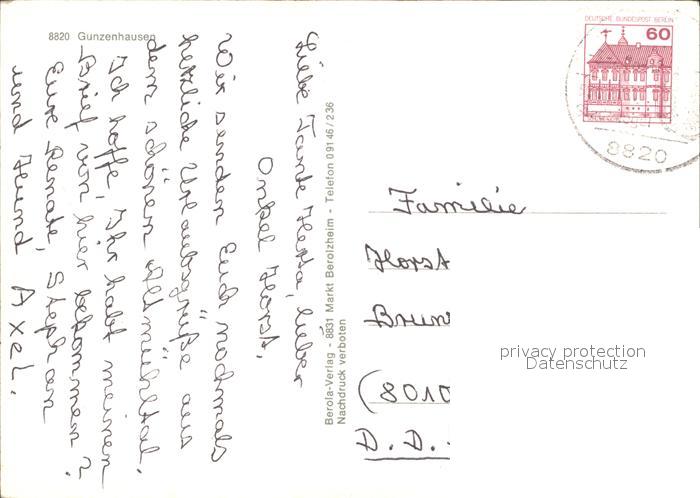 8820 Gunzenhausen
Liebe Tante Herta, lieber
Onkel Horst,
Wir senden Euch nochmals
herzliche Urlaubsgrüße aus
dem schönen Altmühltal.
Ich hoffe, Ihr habt meinen
Brief von hier bekommen?
Eure Renate, Stephan
und Axel.
Berola-Verlag - 8831 Markt Berolzheim - Telefon 09146/236
Nachdruck verboten
DEUTSCHE BUNDESPOST BERLIN
60
8820
Familie
Horst
Brun
(8010
D. D.
privacy protection
Datenschutz